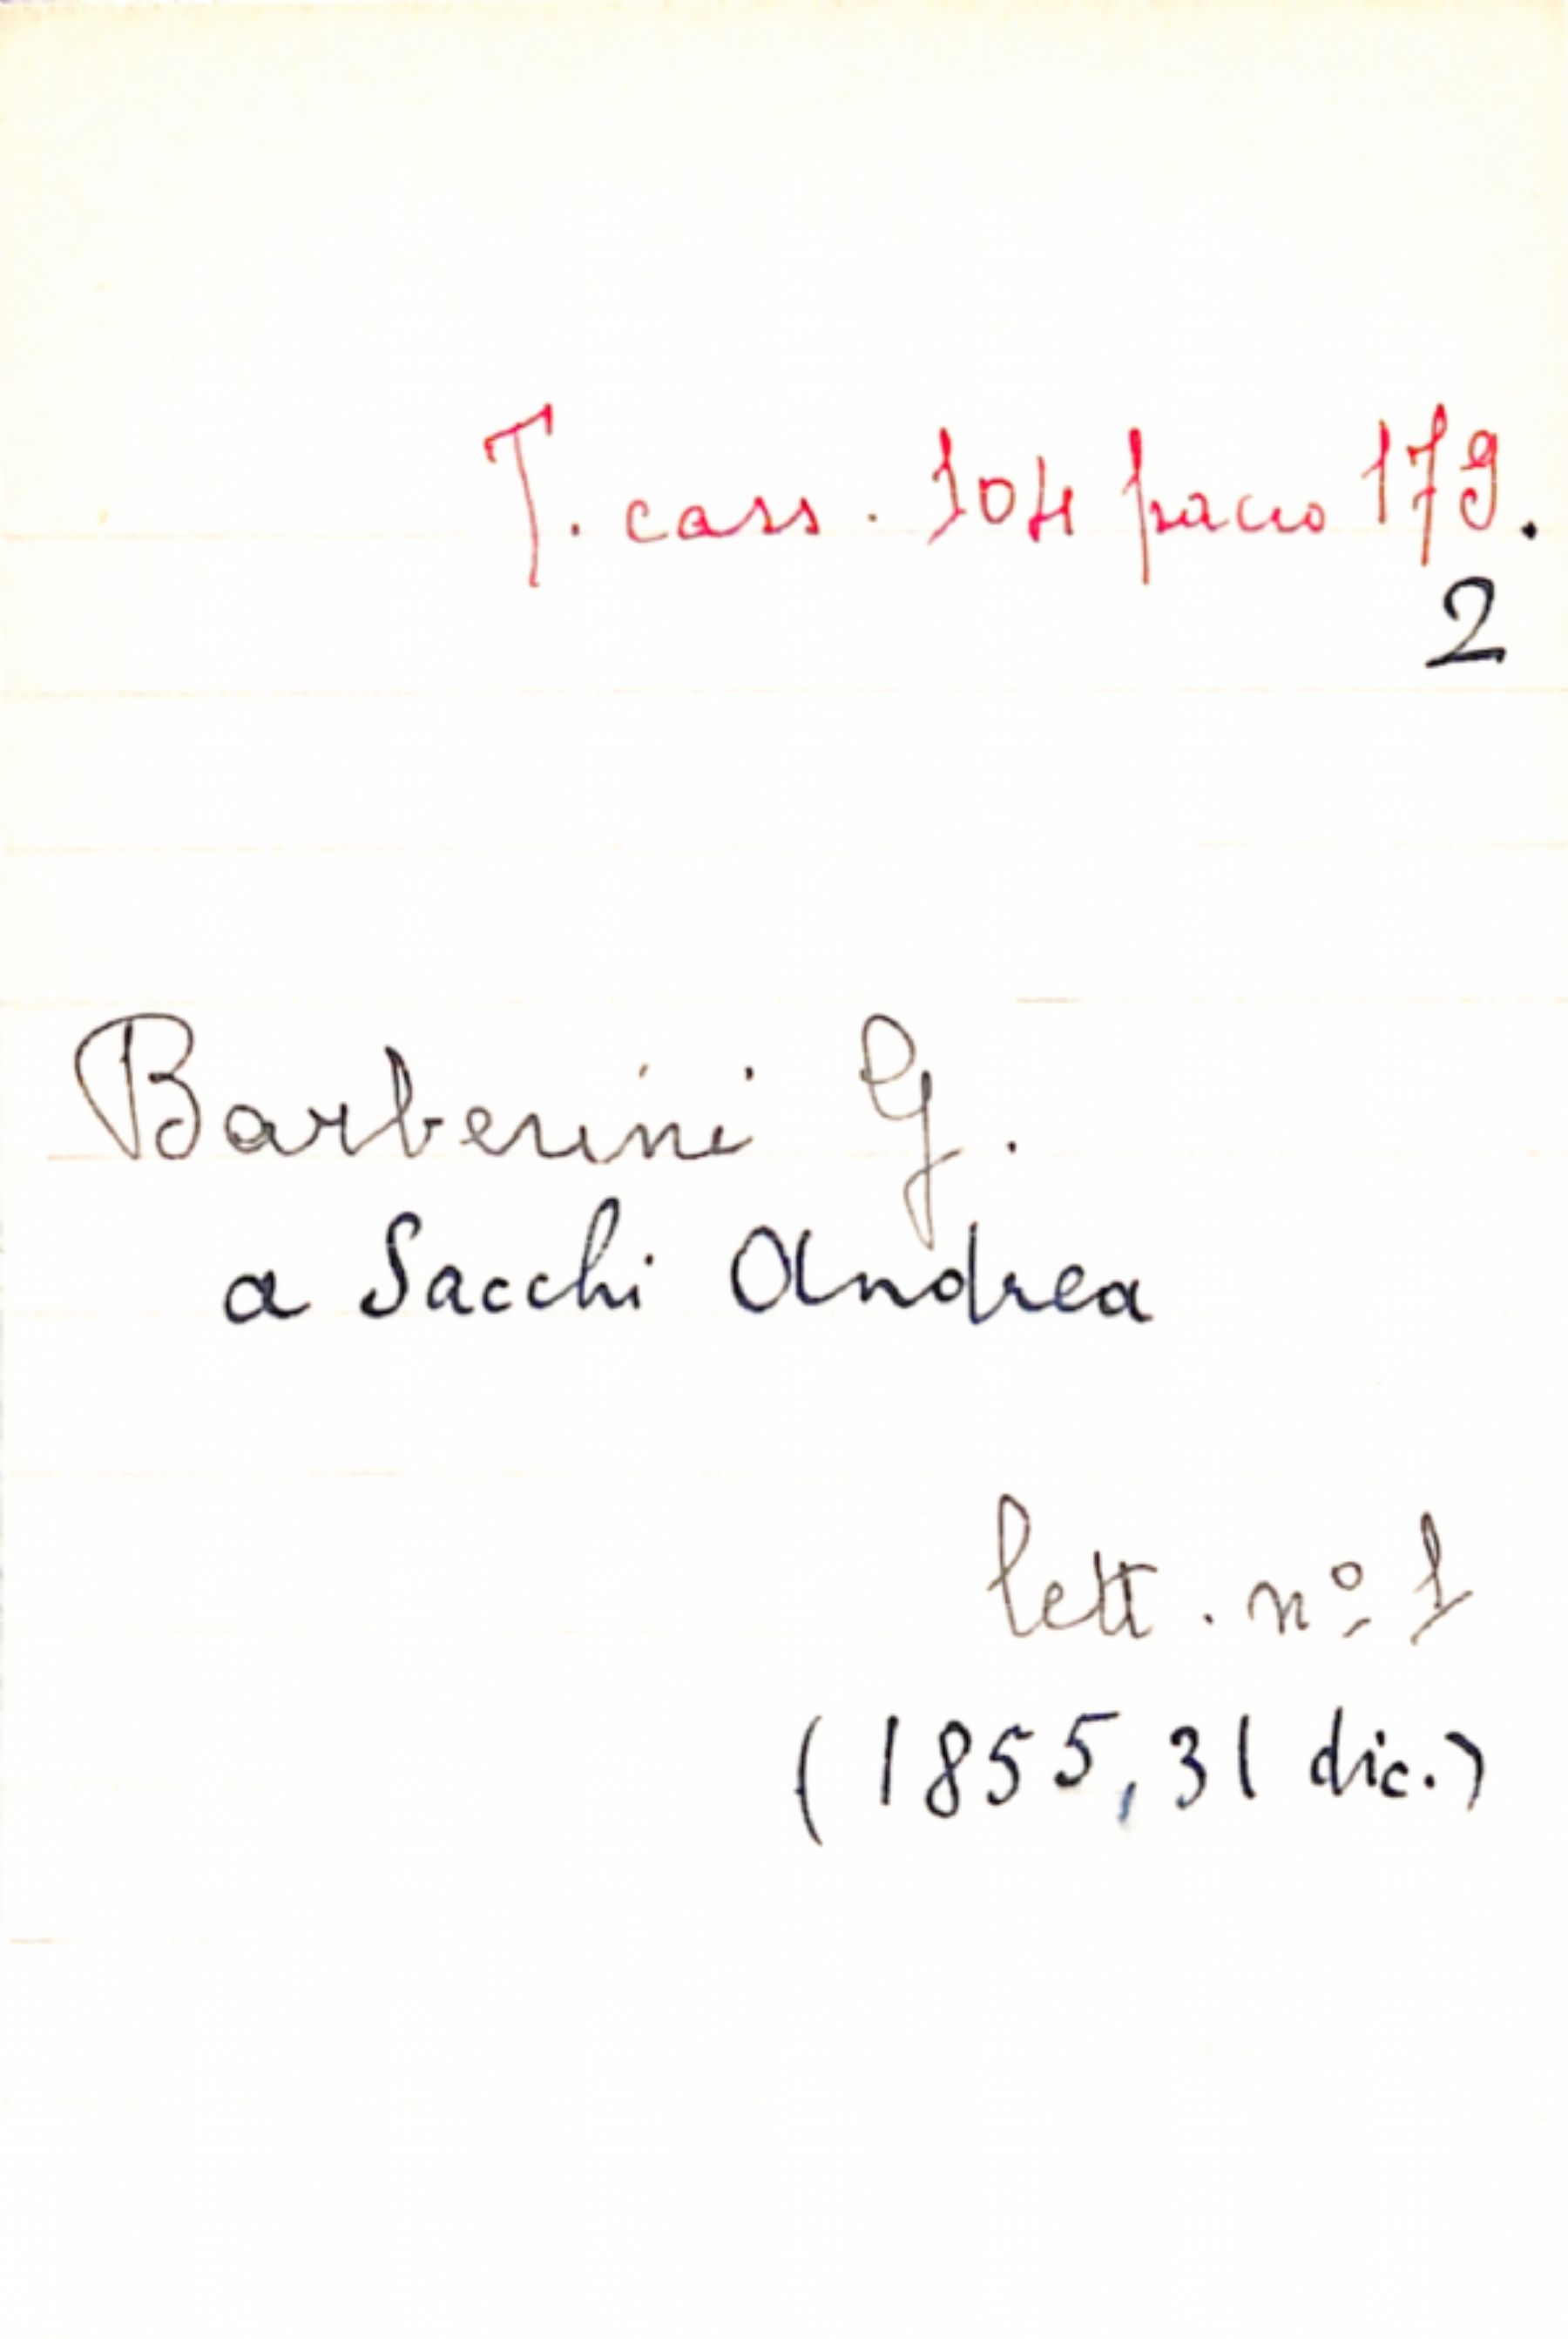 T. cass. 104 pacco 179.
2
Barberini G.
a Sacchi Andrea
lett. nº 1
(1855, 31 dic.)